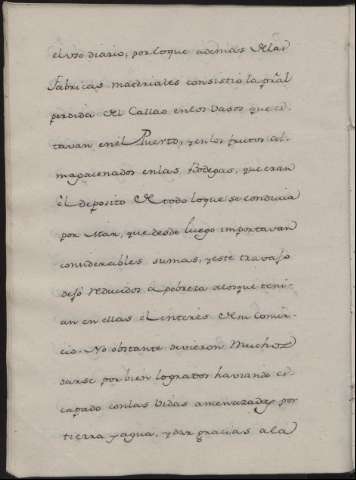 el uso diario, por lo que ademas de las
Fabricas materiales consistio la pral
perdida del Callao en los Vasos que es
tavan en el Puerto, y en los frutos al
magacenados en las Bodegas, que eran
el deposito de todo lo que se conducia
por Mar, que desde luego importavan
considerables sumas, y este travajo
dejó reducidos á pobreza a los que teni
an en ellas el interes de su Comer-
cio. No obstante devieron muchos
darse por bien logrados haviendo es
capado con las vidas amenazadas por
tierra y agua, y dar gracias a la